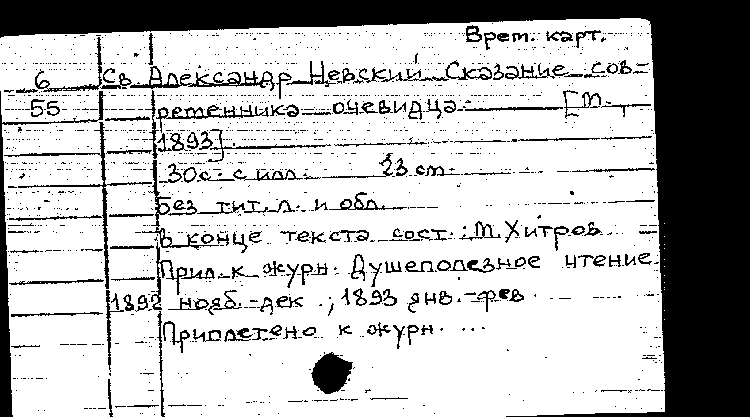 Врем. карт.
6 Св. Александр Невский. Сказание сов-
55 ременника очевидца. [М.,
1893].
30с. с илл. 23 см.
Без тит. л. и обл.
В конце текста сост.: М. Хитров
Прил. к журн. Душеполезное чтение
1892 нояб.-дек.; 1893 янв.-фев.
Приплетено к журн. ...